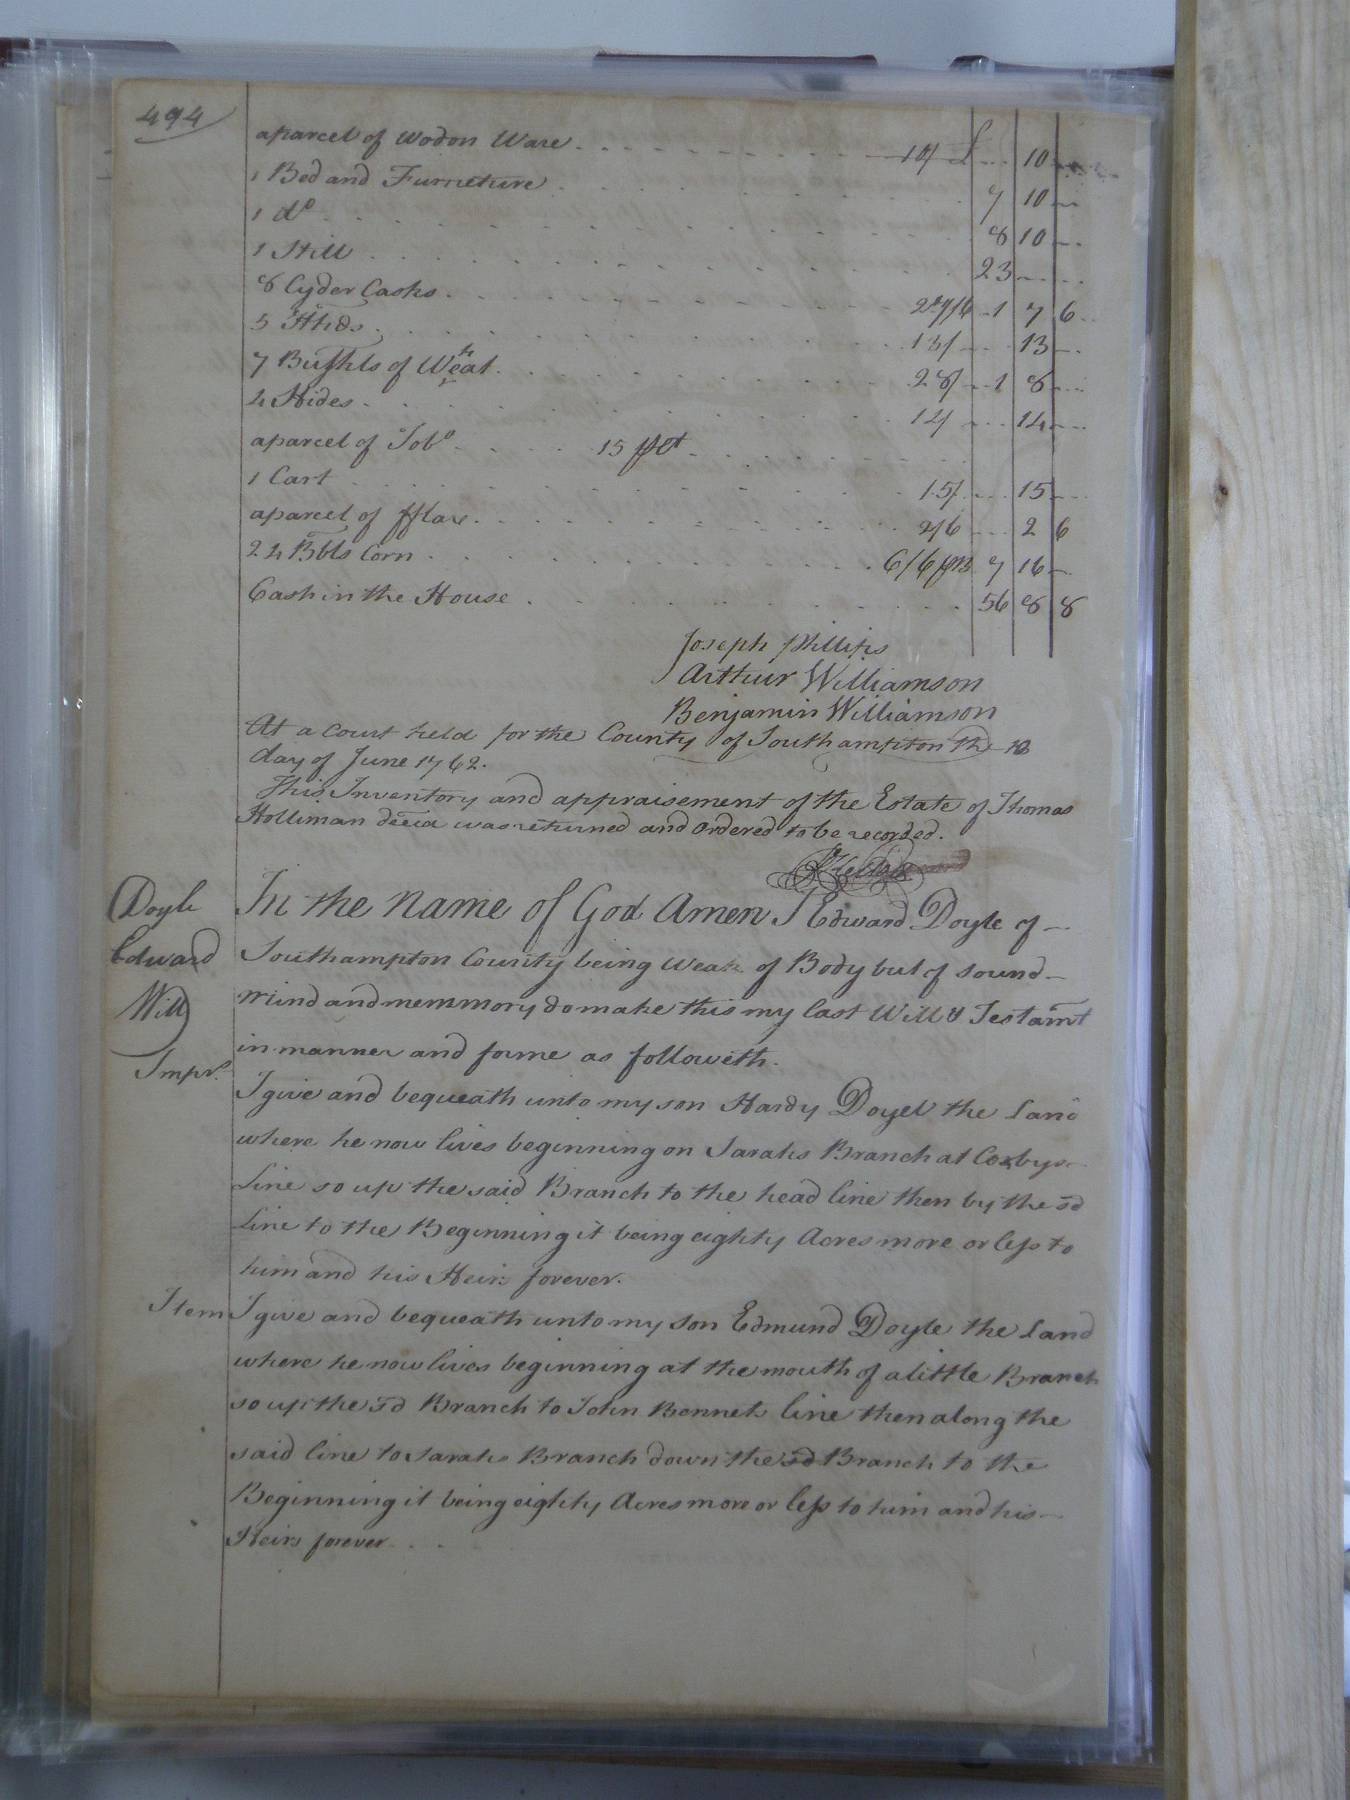 494
aparcel of Wodon Ware 10/ £ 10
1 Bed and Furnieture 7 10
1 do 8 10
1 Still 23
8 Cyder Casks 27/6 1 7 6
5 Hhds 13/ 13
7 Bushls of Wheat 28/ 1 8
4 Hides 14/ 14
aparcel of Tobo 15 pct
1 Cart 15/ 15
aparcel of fflax 2/6 2 6
24 Bbls Corn 6/6 7 16
Cash in the House 56 8 8
Joseph Phillips
Arthur Williamson
Benjamin Williamson
At a Court held for the County of Southampton the 10
day of June 1762.
This Inventory and appraisement of the Estate of Thomas
Holliman decd was returned and Ordered to be recorded.
Doyle
Edward
Will
In the Name of God Amen I Edward Doyle of
Southampton County being Weak of Body but of sound
mind and memmory do make this my last Will & Testamt
in manner and forme as followeth.
Impr.
I give and bequeath unto my son Hardy Doyel the Land
where he now lives beginning on Sarahs Branch at Cosbys
Line so up the said Branch to the head line then by the sd
Line to the Beginning it being eighty Acres more or less to
him and his Heirs forever.
Item I give and bequeath unto my son Edmund Doyle the Land
where he now lives beginning at the mouth of a little Branch
so up the sd Branch to John Bennets line then along the
said line to Sarahs Branch down the sd Branch to the
Beginning it being eighty Acres more or less to him and his
Heirs forever